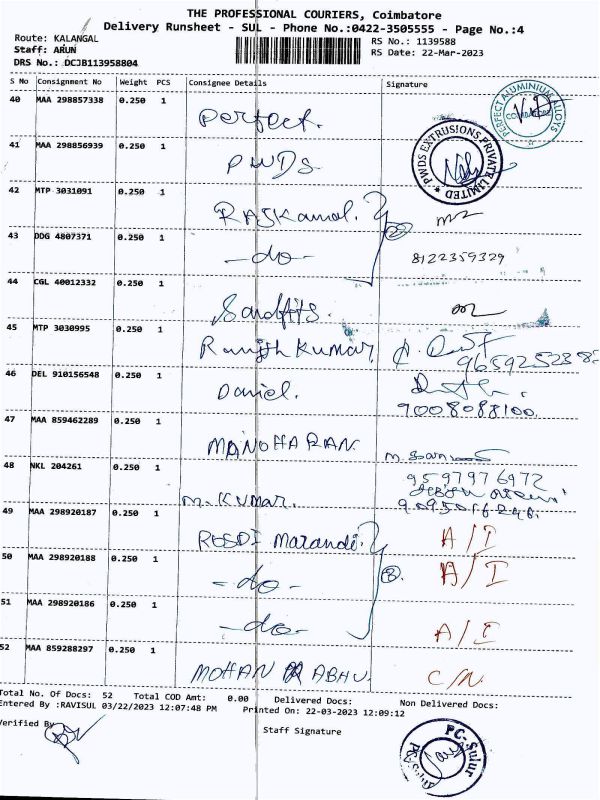 THE PROFESSIONAL COURIERS, Coimbatore
Delivery Runsheet - SUL - Phone No.:0422-3505555 - Page No.:4
Route: KALANGAL
RS No.: 1139588
Staff: ARUN
RS Date: 22-Mar-2023
DRS No.: DCJB113958804
S No Consignment No Weight PCS Consignee Details Signature
40 MAA 298857338 0.250 1 Perfect.
PERFECT ALUMINIUM ALLOYS
41 MAA 298856939 0.250 1 PWDS
PWDS EXTRUSIONS PRIVATE LIMITED
42 MTP 3031091 0.250 1 RAJKamal. 2
43 DDG 4807371 0.250 1 -do- 8122359329
44 CGL 40012332 0.250 1
45 MTP 3030995 0.250 1 Ranjith Kumar
46 DEL 910156548 0.250 1 Daniel.
9008088100.
47 MAA 859462289 0.250 1 MANOHARAN
48 NKL 204261 0.250 1 M. KUMAR. 9597976972
49 MAA 298920187 0.250 1 Marandi. A/I
50 MAA 298920188 0.250 1 -do- 3. A/I
51 MAA 298920186 0.250 1 -do- A/I
52 MAA 859288297 0.250 1 MOHAN C/N
Total No. Of Docs: 52 Total COD Amt: 0.00 Delivered Docs: Non Delivered Docs:
Entered By :RAVISUL 03/22/2023 12:07:48 PM Printed On: 22-03-2023 12:09:12
Verified By Staff Signature
PC-Sulur